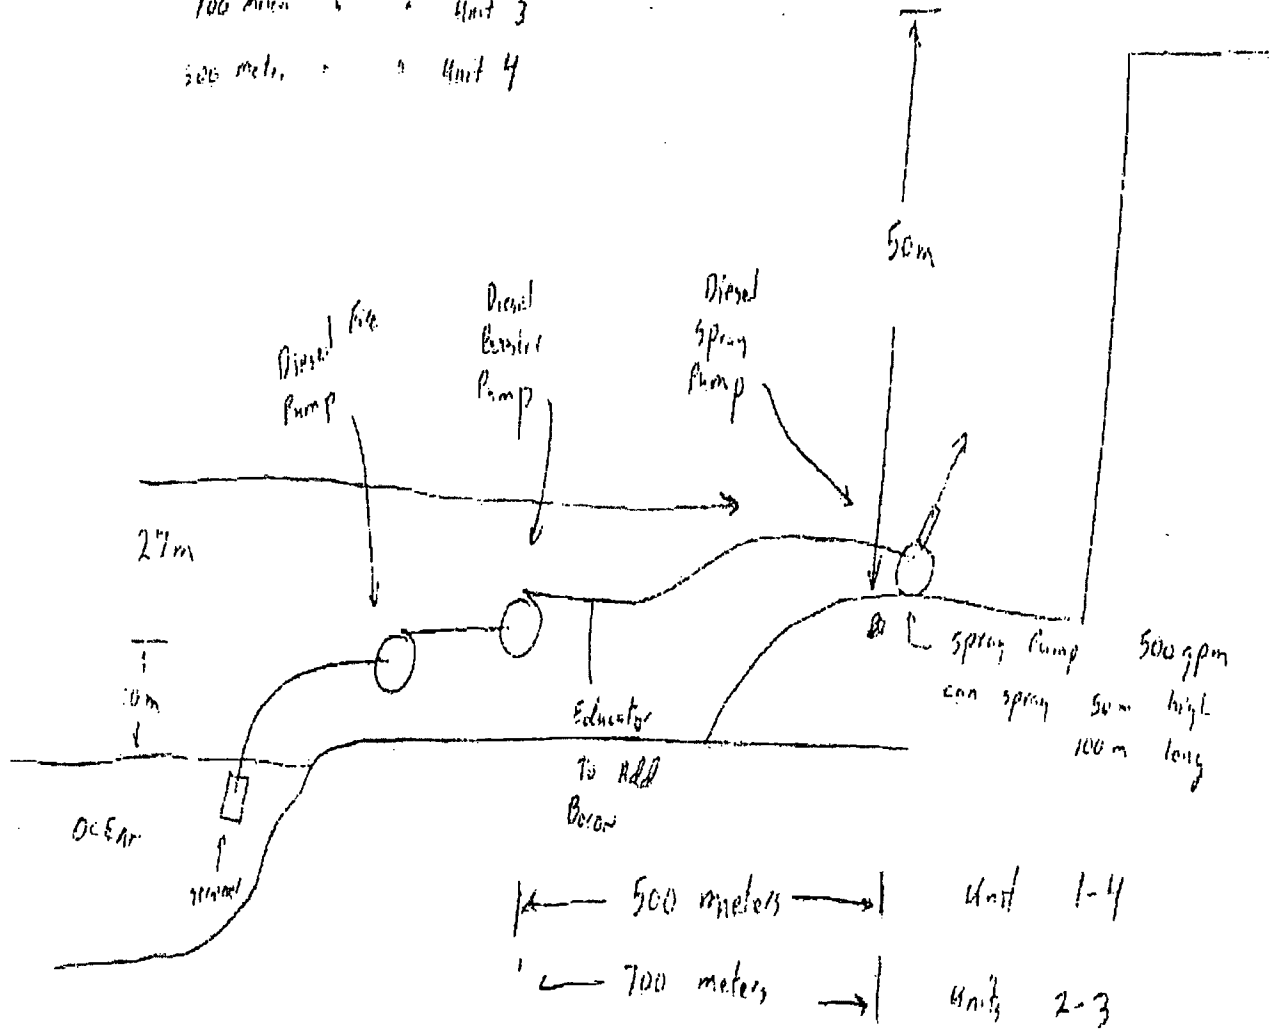 Unit 3
500 meter " " Unit 4
50m
Diesel Fire
Pump
Diesel
Booster
Pump
Diesel
Spray
Pump
27m
10m
Spray Pump 500gpm
can spray 50m high
100m long
Eductor
To Add
Boron
OCEAN
500 meters Unit 1-4
700 meters Units 2-3